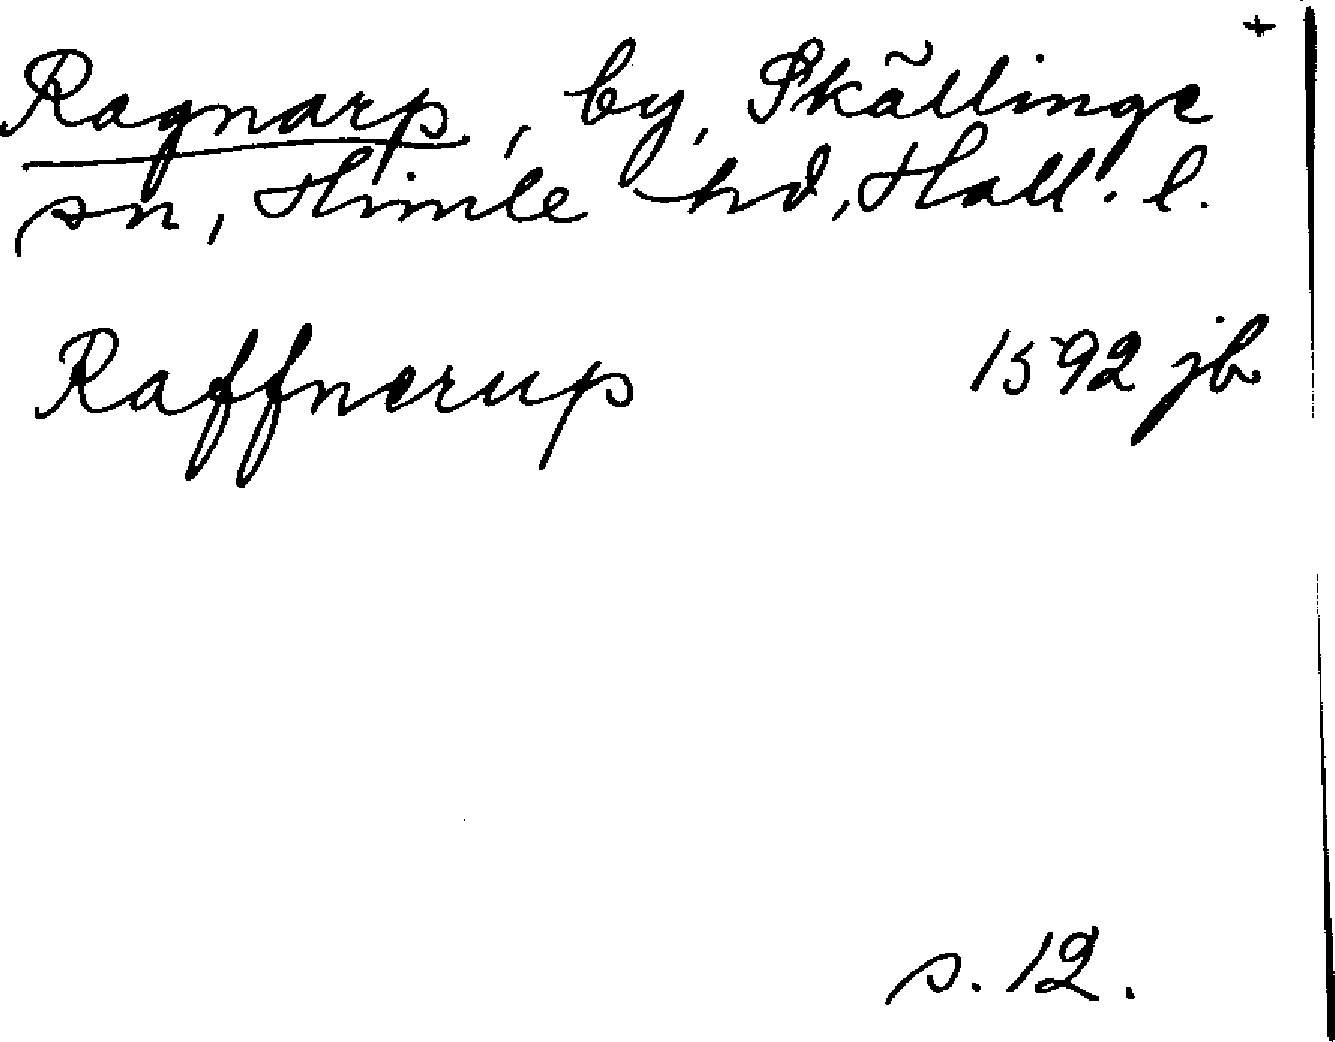 +
Ragnarp, by, Skällinge
sn, Himle hd, Hall. l.
Raffnerup 1592 jb
s. 12.